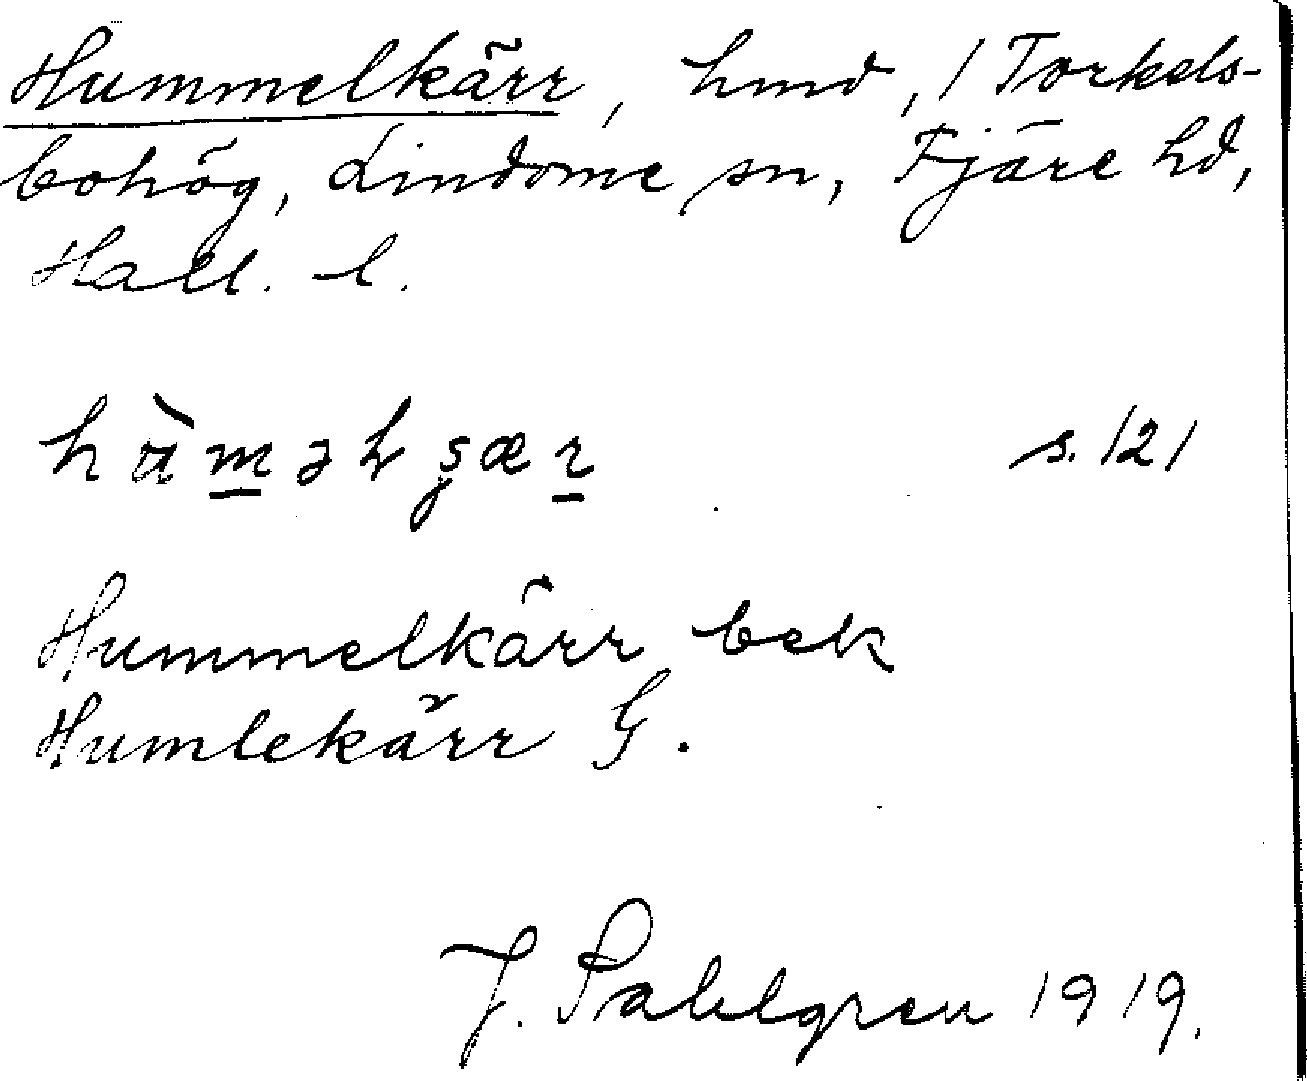 Hummelkärr, hmd, 1 Torkels-
bohög, Lindome sn, Fjäre hd,
Hall. l.
s. 121
Hummelkärr bek
Humlekärr G.
J. Sahlgren 1919.